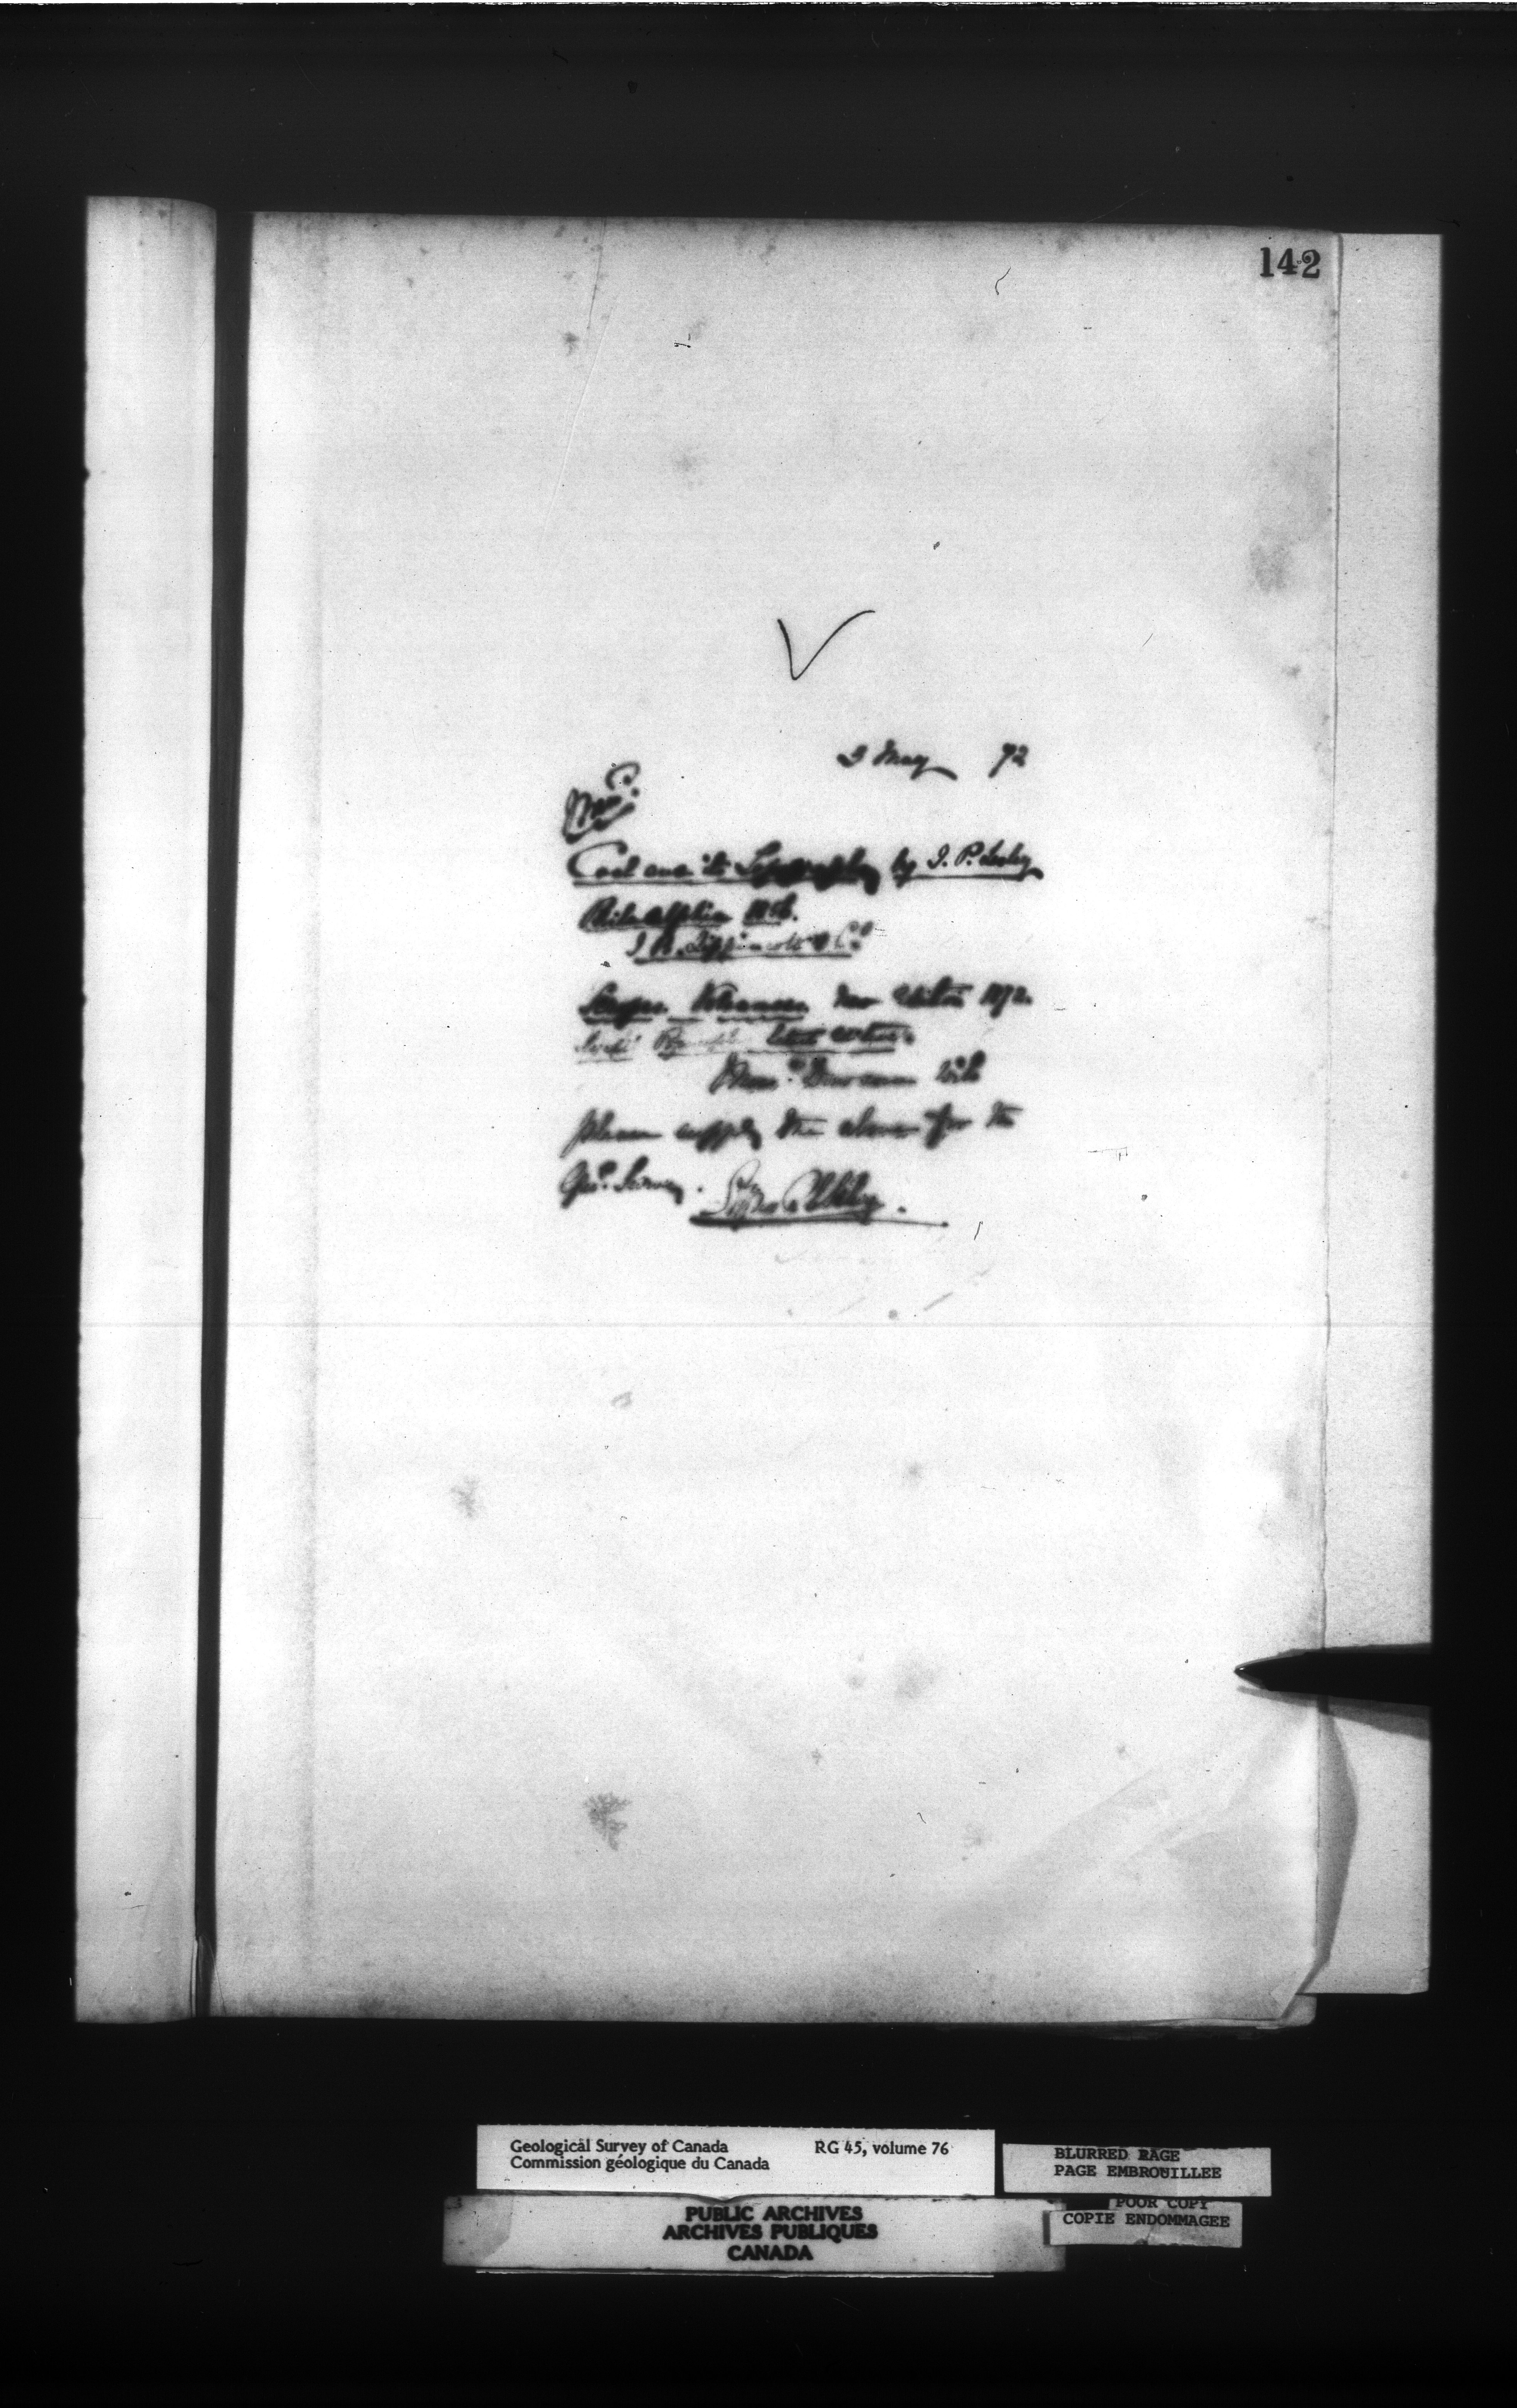 142
3 May 72
Coal and its Topography by J. P. Lesley
Philadelphia 1856.
J. B. Lippincott & Co
Scrope Volcanoes New Edition 1872.
latest edition.
Messrs Dawson will
please supply the above for the
Geol. Survey.
Geological Survey of Canada RG 45, volume 76
Commission géologique du Canada
BLURRED PAGE
PAGE EMBROUILLEE
POOR COPY
COPIE ENDOMMAGEE
PUBLIC ARCHIVES
ARCHIVES PUBLIQUES
CANADA